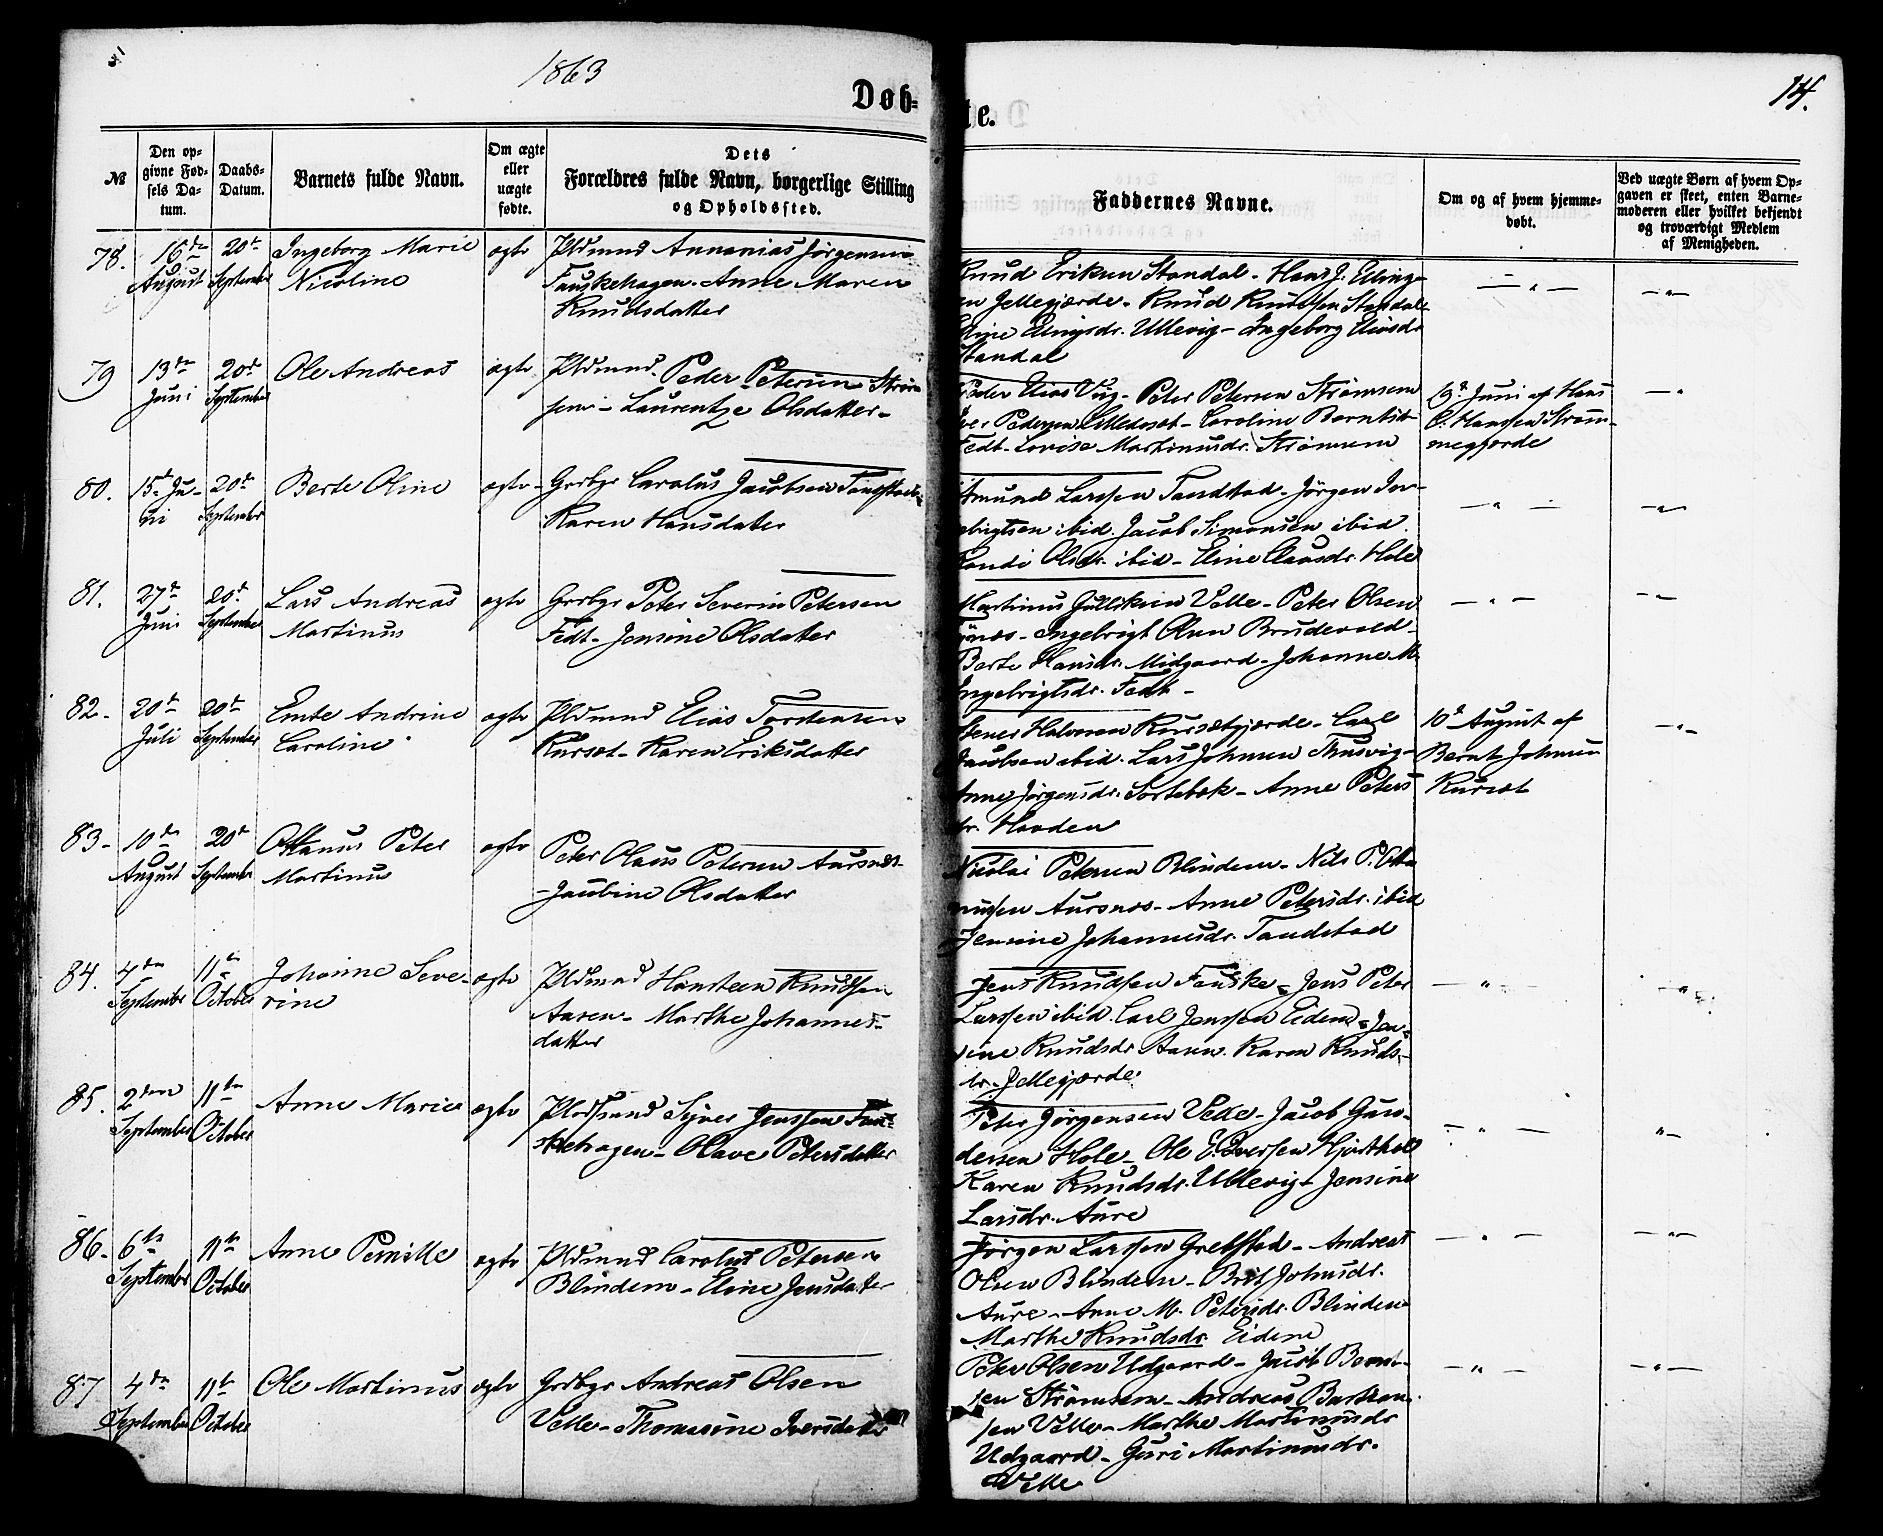 1863
14.
Døb-
te.
№
Den op-
givne Fød-
sels Da-
tum.
Daabs-
Datum.
Barnets fulde Navn.
Om ægte
eller
uægte
fødte.
Dets
Forældres fulde Navn, borgerlige Stilling
og Opholdssted.
Faddernes Navne.
Om og af hvem hjemme-
døbt.
Ved uægte Børn af hvem Op-
gaven er skeet, enten Barne-
moderen eller hvilket bekjendt
og troværdigt Medlem
af Menigheden.
78.
16de
August
20de
September
Ingeborg Marie
Nicoline
ægte
Pldmnd Annanias Jørgensen
Fauskehagen - Anne Maren
Knudsdatter
Knud Eriksen Standal - Hans J. Elling-
sen Jellegjærde - Knud Knudsen Standal
Eline Elingsdr. Ullevig - Ingeborg Eliasdr.
Standal
79
13de
Juni
20de
September
Ole Andreas
ægte
Pldmnd. Peder Petersen Strøm
sem - Laurentze Olsdatter -
Peder Elias Vig - Peter Petersen Strømsem
Iver Pedersen Lilledoset - Caroline Berntsdr
Fedt - Lovise Martinusdr. Strømsem
19de Juni af Hans
C. Hansen Strøm-
megjerde
80.
15de Ju-
ni
20de
September
Berte Oline
ægte -
Grdbgr Carolus Jacobsen Tandstad
Karen Hansdatter
Amund Larssen Tandstad - Jørgen In-
gebrigtsen ibid. Jacob Simonsen ibid.
Randi Olsdr. ibid - Eline Clausdr. Hole
81.
27de
Juni
20de
September
Lars Andreas
Martinus
ægte
Grdbgr Peter Severin Petersen
Fedt - Jensine Olsdatter
Martinus Gulliksen Velle - Peter Olsen
- Ingebrigt Olsen Brudevold -
Berte Hansdr. Midgaard - Johanne M.
Ingebrigtsdr. Fedt -
82 -
20de
Juli
20de
September
Emte Andrine
Caroline
ægte
Pldmnd Elias Tordensen
Kurset - Karen Eriksdatter
Halvorsen Kursetgjærde - Carl
Jacobsen ibid. Lars Johnsen Thusvig -
Anne Jørgensdr. Sortebæk - Anne Peters
dr. Haaden
10de August af
Bernt Johnsen
Kurset
83 -
10de
August
20de
September
Ottanus Peter
Martinus
ægte
Peter Olaus Petersen Aursnes
- Jacobine Olsdatter
Nicolai Petersen Blindem - Nils P. Otta
nussen Aursnes - Anne Petersdr. ibid
Jensine Johannesdr. Tandstad
84.
4de
September
11te
October
Johanne Seve-
rine
ægte
Pldmnd Hansteen Knudsen
Aasen - Marthe Johannes-
datter
Jens Knudsen Fauske - Jens Peter
Larssen ibid. Carl Jenssen Eidem - Jen-
sine Knudsdr. Aasen. Karen Knuds-
dr. Jellegjerde
85.
2den
September
11te
October
Anne Marie
ægte
Pladsmnd Sejver Jenssen Fau-
skehagen - Olave Petersdatter
Peter Jørgensen Velle - Jacob Gun-
dersen Hole - Ole E. Iversen Hjorthol
Karen Knudsdr. Ullevig - Jensine
Larsdr. Aure
86 -
6te
September
11te
October
Anne Pernille
ægte
Pldmnd Carolus Petersen
Blindem - Eline Jensdatter
Jørgen Larssen Grebstad - Andreas
Olsen Blindem - Brit Johnsdr.
Aure - Anne M. Petersdr. Blindem
Marthe Knudsdr. Eidem
87
4de
September
11te
October
Ole Martinus
ægte
Grdbgr Andreas Olsen
Velle - Thomasine Iversdatter
Peter Olsen Udgaard - Jacob Bernt-
sen Strømsem - Andreas Bastian-
sen Velle - Marthe Martinusdr
Udgaard - Guri Martinusdr.
Velle